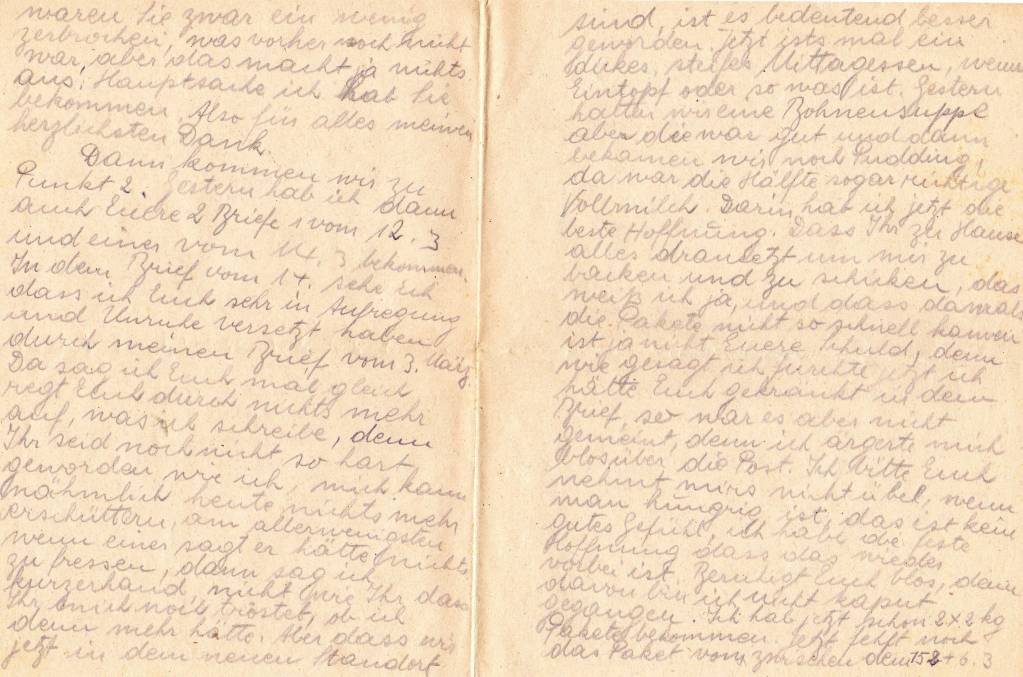 waren Sie zwar ein wenig
zerbrochen, was vorher noch nicht
war, aber das macht ja nichts
aus. Hauptsache ich hab Sie
bekommen. Also für alles meinen
herzlichsten Dank.
Dann kommen wir zu
Punkt 2. Gestern hab ich dann
auch Euere 2 Briefe 1 vom 12. 3
und einer vom 14. 3 bekommen.
In dem Brief vom 14. sehe ich
dass ich Euch sehr in Aufregung
und Unruhe versetzt haben
durch meinen Brief vom 3. März
Da sag ich Euch mal gleich
regt Euch durch nichts mehr
auf, was ich schreibe, denn
Ihr seid noch nicht so hart
geworden wie ich, mich kann
nähmlich heute nichts mehr
erschüttern, am allerwenigsten
wenn einer sagt er hätte nichts
zu fressen, dann sag ich
kurzerhand, nicht wie Ihr dass
Ihr mich noch tröstet, ob ich
denn mehr hätte. Aber dass wir
jetzt in dem neuen Standort
sind, ist es bedeutend besser
geworden. Jetzt ists mal ein
dickes, steifes Mittagessen, wenn
Eintopf oder so was ist. Gestern
hatten wir eine Bohnensuppe
aber die war gut und dann
bekamen wir noch Pudding,
da war die Hälfte sogar richtige
Vollmilch. Darin hab ich jetzt die
beste Hoffnung. Dass Ihr zu Hause
alles dransetzt um mir zu
backen und zu schicken, das
weiß ich ja, und dass damals
die Pakete nicht so schnell kamen
ist ja nicht Euere Schuld, denn
wie gesagt ich fürchte jetzt ich
hätte Euch gekränkt in dem
Brief, so war es aber nicht
gemeint, denn ich ärgerte mich
blos über die Post. Ich bitte Euch
nehmt mirs nicht übel, wenn
man hungrig ist, das ist kein
gutes Gefühl, ich habe die feste
Hoffnung dass das wieder
vorbei ist. Beruhigt Euch blos, denn
davon bin ich nicht kaput
gegangen. Ich hab jetzt schon 2x2 kg
Pakete bekommen. Jetzt fehlt noch
das Paket vom zwischen dem + 6. 3